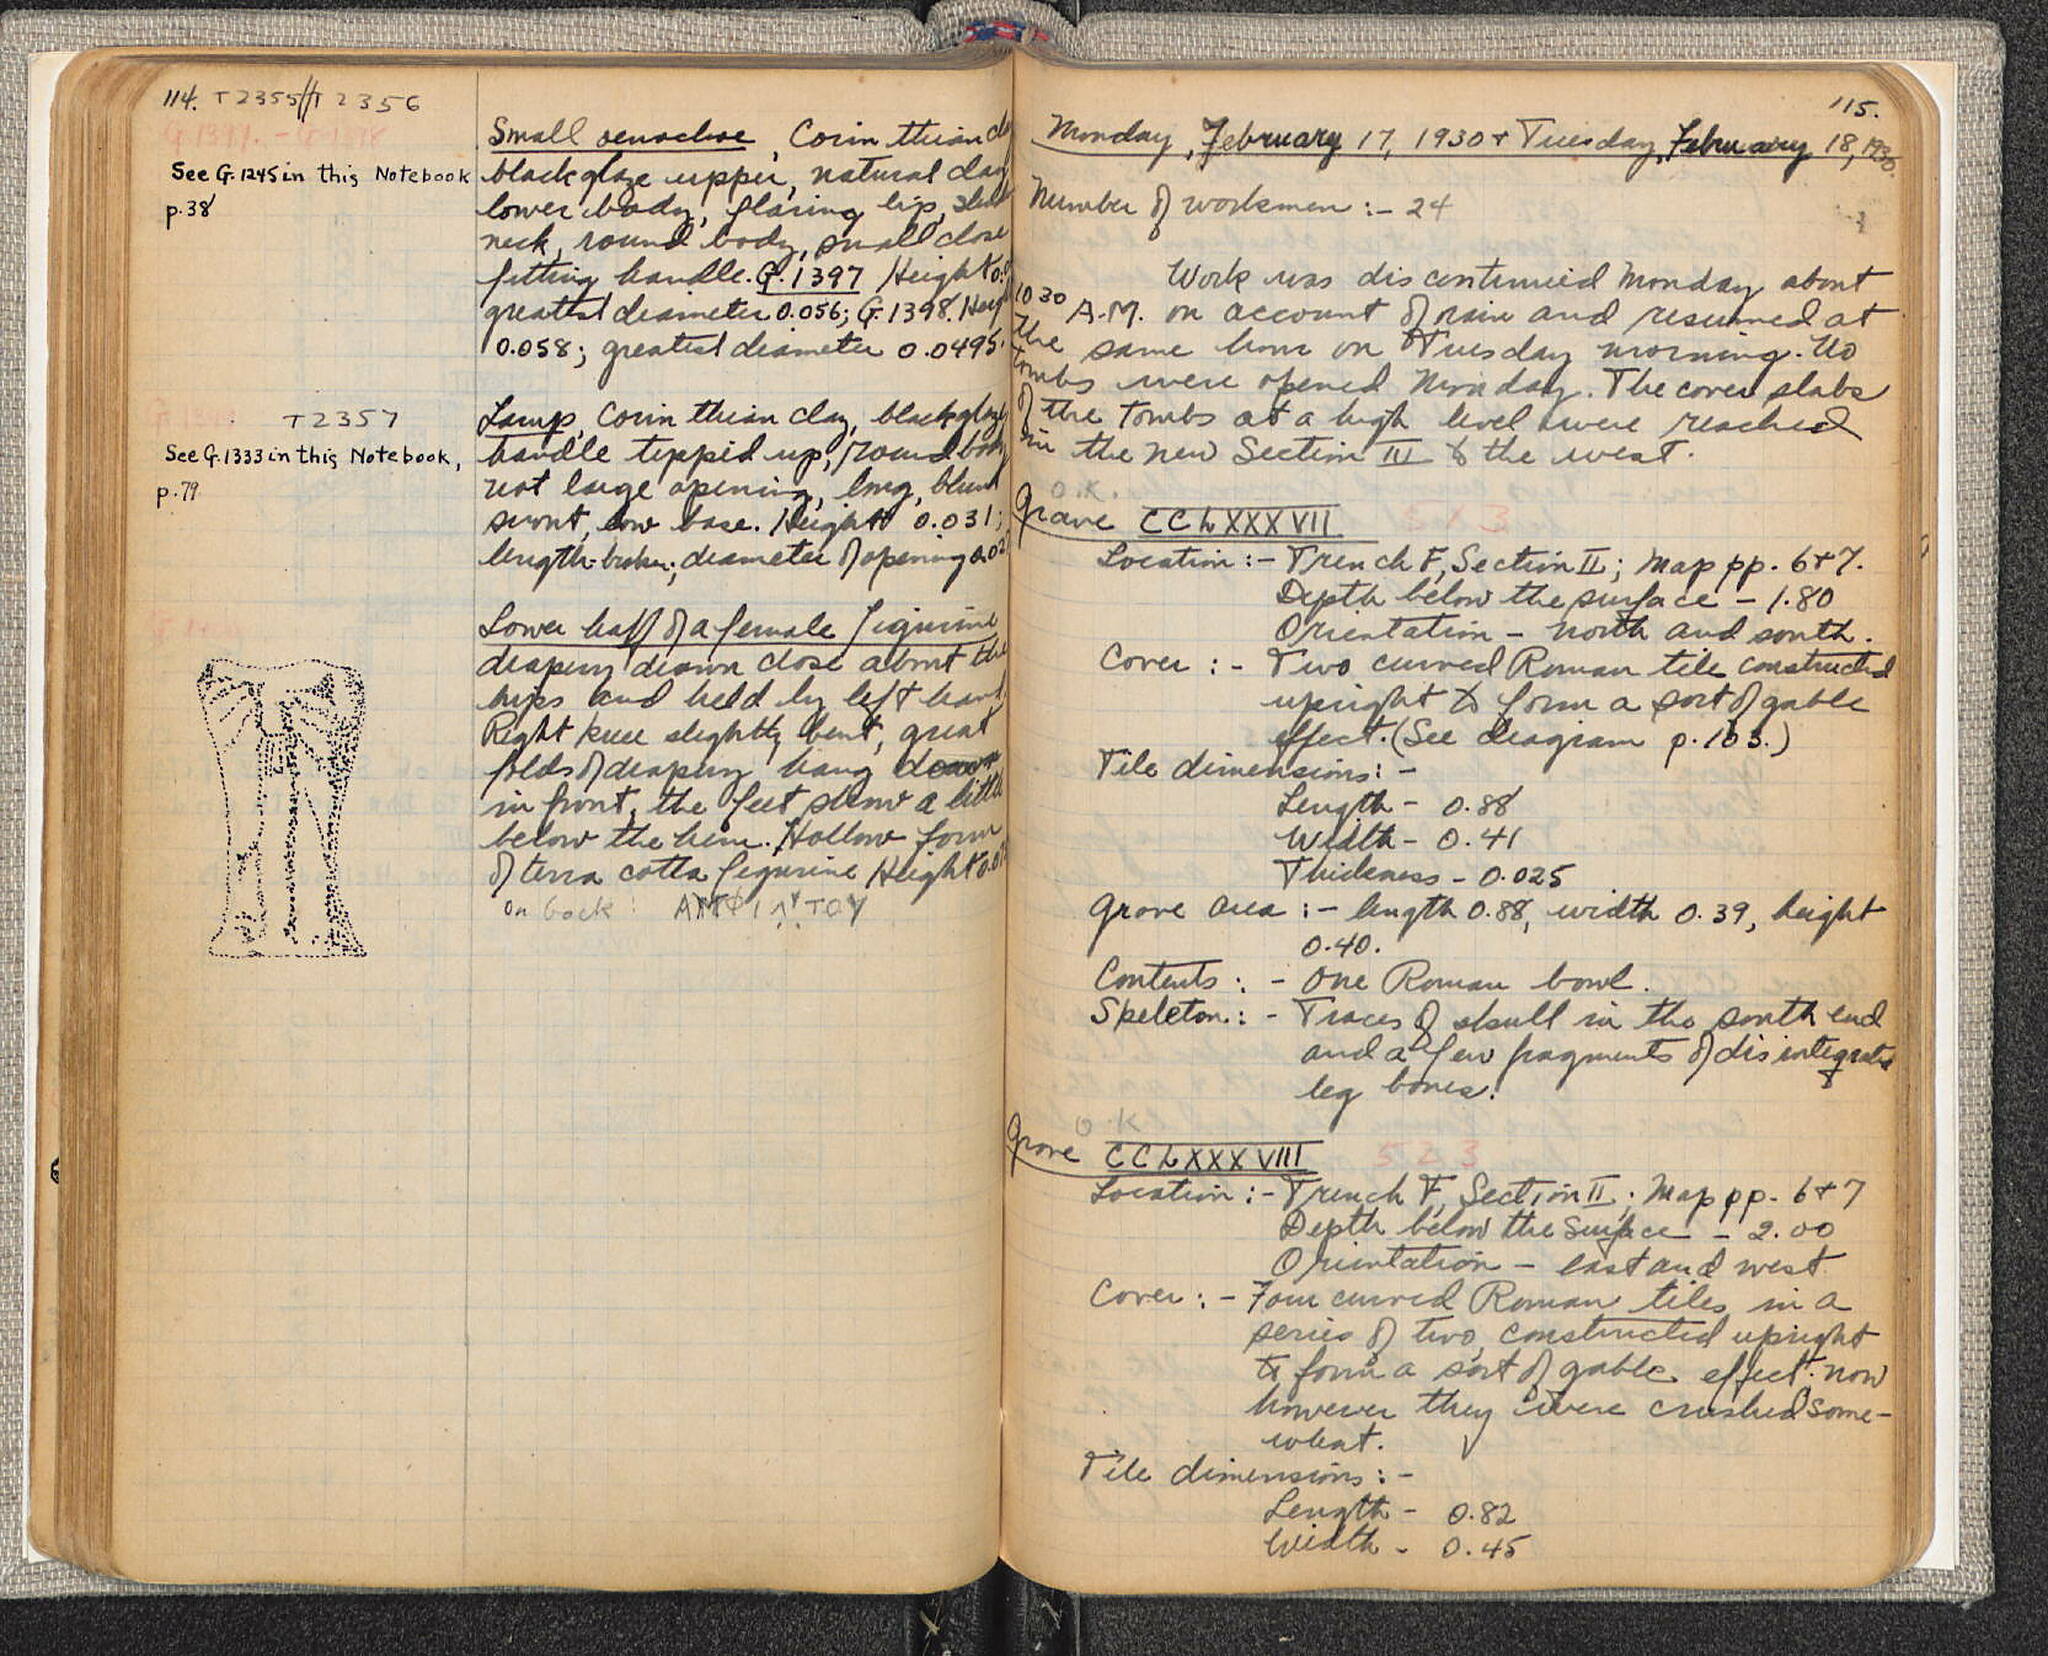 114. T 2355 // T 2356
G.1397. - G.1398
See G.1245 in this Notebook
p.38
Small oenochoe, Corinthian
black glaze upper, natural clay
lower body, flaring lip,
neck, round body, small close
fitting handle. G.1397 Height
greatest diameter 0.056; G.1398. Heig
0.058; greatest diameter 0.0495.
T 2357
See G.1333 in this Notebook,
p.79
Lamp, Corinthian clay, black glaze
handle tipped up, round body
not large opening, long, blunt
snout, low base. Height 0.031;
length-broken; diameter of opening
Lower half of a female figurine
drapery drawn close about the
hips and held by left hand.
Right knee slightly bent, great
folds of drapery hang down
in front, the feet show a little
below the hem. Hollow form
of terra cotta figurine Height
on back:
115.
Monday, February 17, 1930 + Tuesday, February 18, 1930.
Number of workmen :- 24
Work was discontinued Monday about
10 30 A.M. on account of rain and resumed at
the same hour on Tuesday morning. No
tombs were opened Monday. The cover slabs
of the tombs at a high level were reached
in the new Section III to the west.
O.K.
Grave CCLXXXVII 513
Location :- Trench F, Section II; Map pp. 6+7.
Depth below the surface - 1.80
Orientation - north and south.
Cover :- Two curved Roman tile constructed
upright to form a sort of gable
effect. (See diagram p.103.)
Tile dimensions :-
Length - 0.88
Width - 0.41
Thickness - 0.025
Grave area :- length 0.88, width 0.39, height
0.40.
Contents :- One Roman bowl.
Skeleton :- Traces of skull in the south end
and a few fragments of disintegrated
leg bones.
O.K
Grave CCLXXXVIII 523
Location :- Trench F, Section II; Map pp. 6+7
Depth below the surface - 2.00
Orientation - east and west
Cover :- Four curved Roman tiles in a
series of two, constructed upright
to form a sort of gable effect. now
however they were crushed some-
what.
Tile dimensions :-
Length - 0.82
Width - 0.45